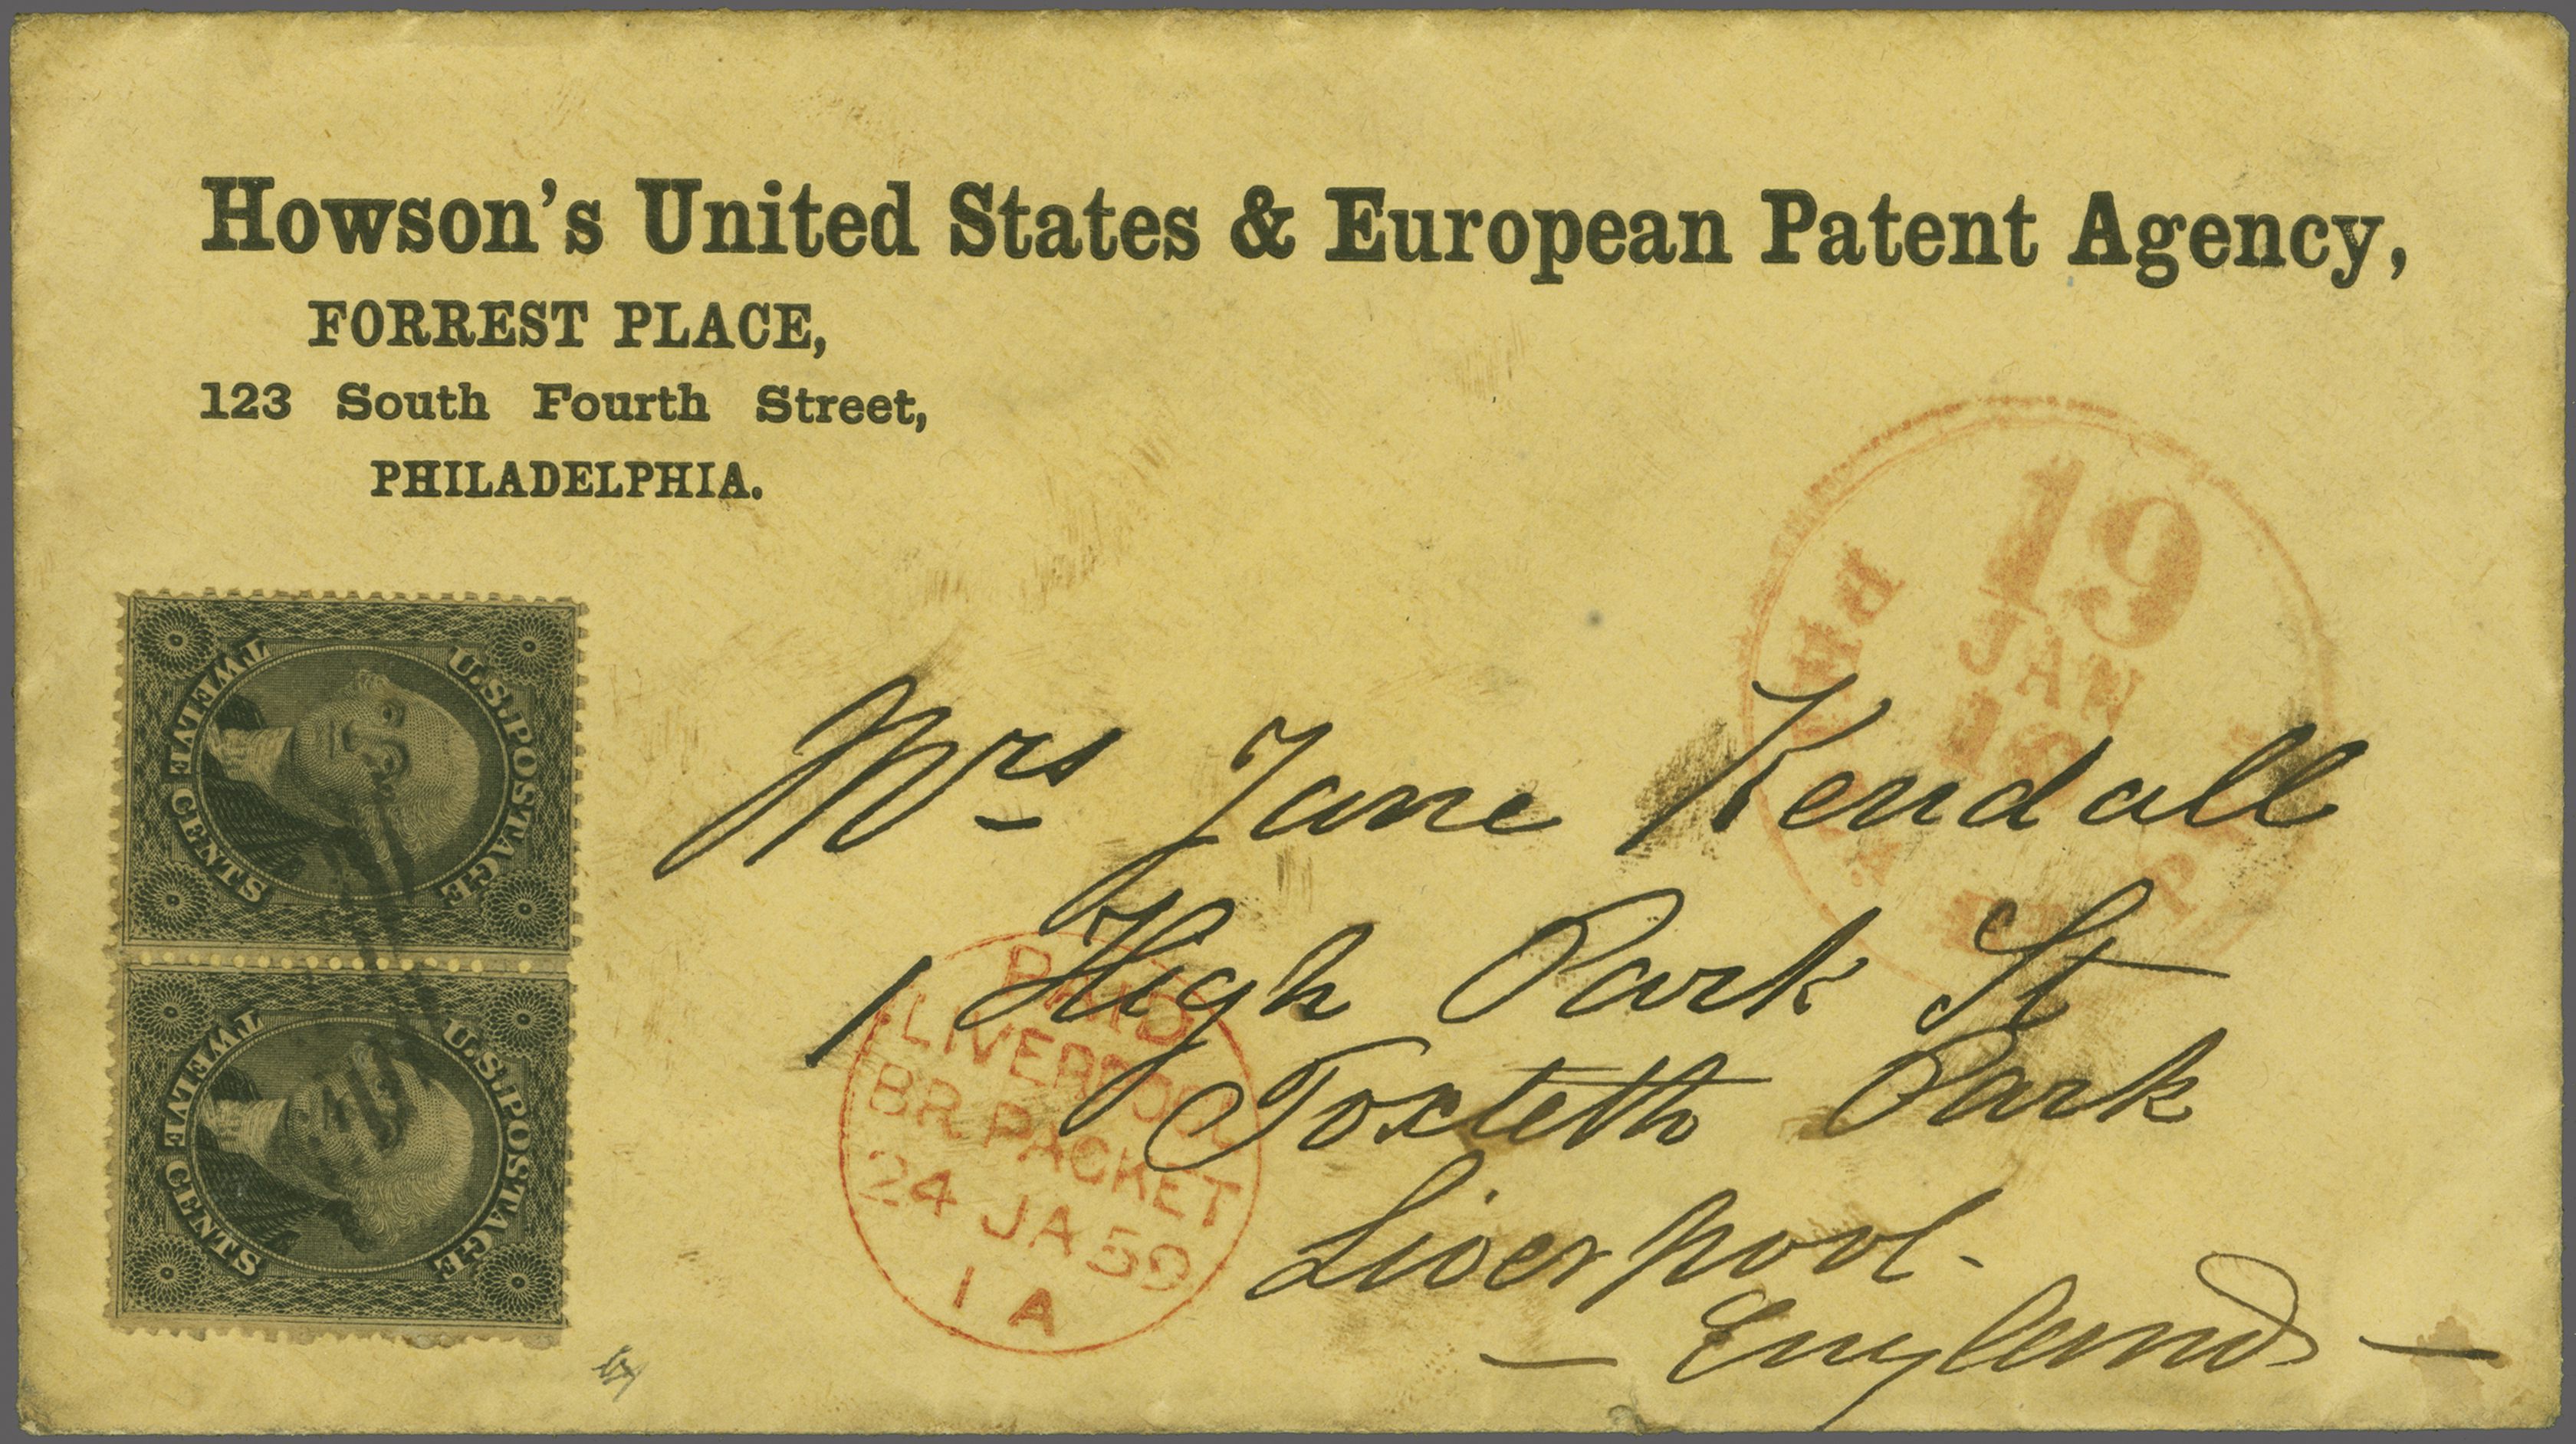 Howson's United States & European Patent Agency,
FORREST PLACE,
123 South Fourth Street,
PHILADELPHIA.
19
JAN
U.S. POSTAGE
TWELVE CENTS
U.S. POSTAGE
TWELVE CENTS
Mrs Jane Kendall
1 High Park St
Toxteth Park
Liverpool.
— England —
PAID
LIVERPOOL
BR PACKET
24 JA 59
1 A